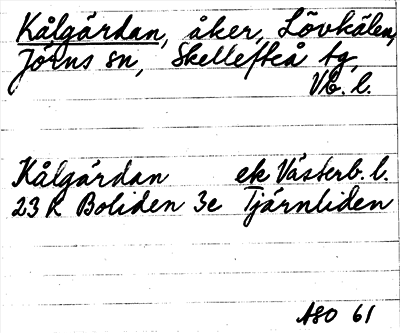 Kålgårdan, åker, Lövkälen,
Jörns sn, Skellefteå tg,
Vb. l.
Kålgårdan ek Västerb. l.
23 K Boliden 3e Tjärnliden
ASO 61